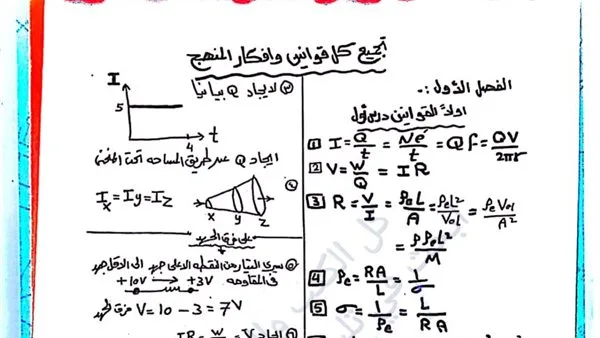 تجميع كل قوانين وافكار المنهج
الفصل الأول :-
اولاً القوانين درس أول
1 I = Q/t = Ne/t = Qf = QV/2πr
2 V = W/Q = IR
3 R = V/I = ρeL/A = ρeL²/Vol = ρeVol/A²
= ρρeL²/M
4 ρe = RA/L = 1/σ
5 σ = 1/ρe = L/RA
لايجاد Q بيانيا
I
5
4
t
ايجاد Q عن طريق المساحه تحت المنحنى
Ix = Iy = Iz
x y z
على فرق الجهد
يسري التيار من النقطه الاعلى جهد الى الاقل جهد
في المقاومه
+10V +3V
فرق الجهد V = 10 - 3 = 7V